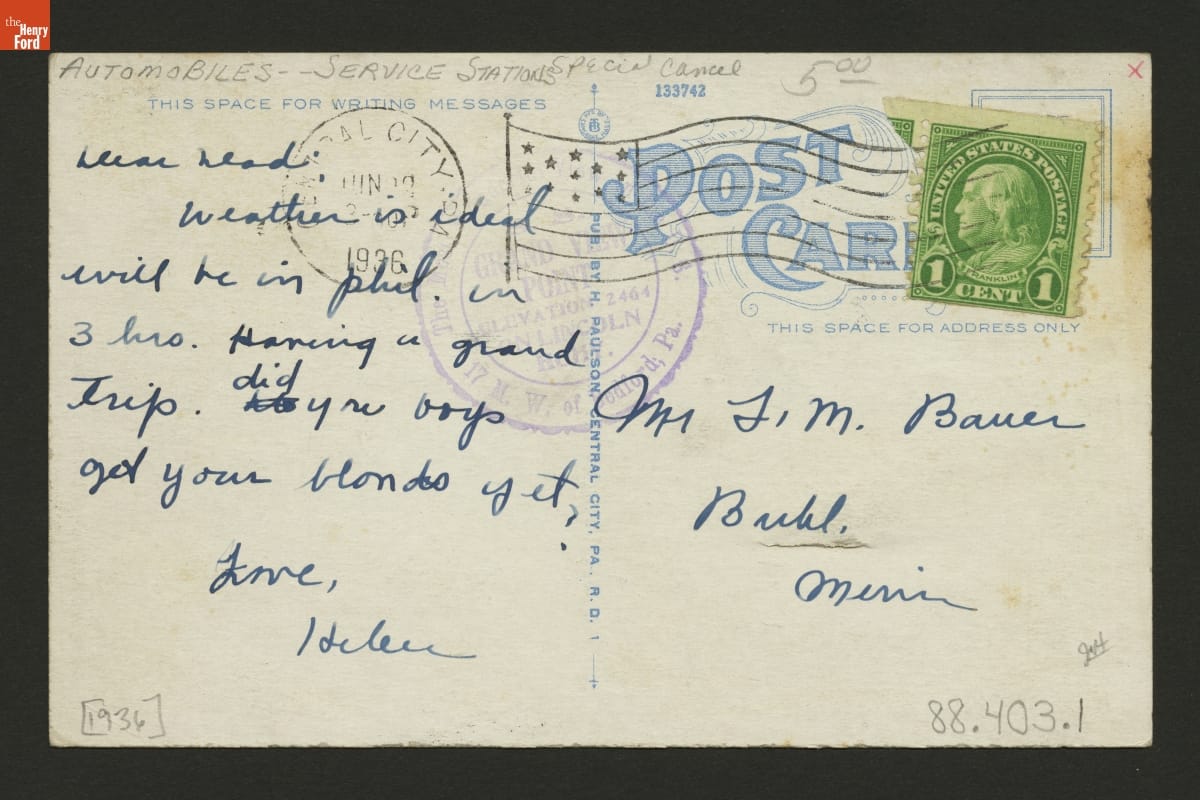 the
Henry
Ford
AUTOMOBILES--SERVICE STATIONS SPECIAL Cancel 5.00
x
133742
THIS SPACE FOR WRITING MESSAGES
CITY, PA
JUN
1936
POST
CARD
UNITED STATES POSTAGE
FRANKLIN
1 CENT 1
THIS SPACE FOR ADDRESS ONLY
GRAND VIEW
POINT
ELEVATION 2464
LINCOLN
17 M. W. of Bedford, Pa.
PUB. BY H. PAULSON, CENTRAL CITY, PA. R.D. 1
Dear Dead:
Weather is ideal
will be in phil. in
3 hrs. Having a grand
trip. did you boys
get your blonds yet?
Love,
Helen
Mr F. M. Bauer
Buhl.
Minn
[1936]
88.403.1